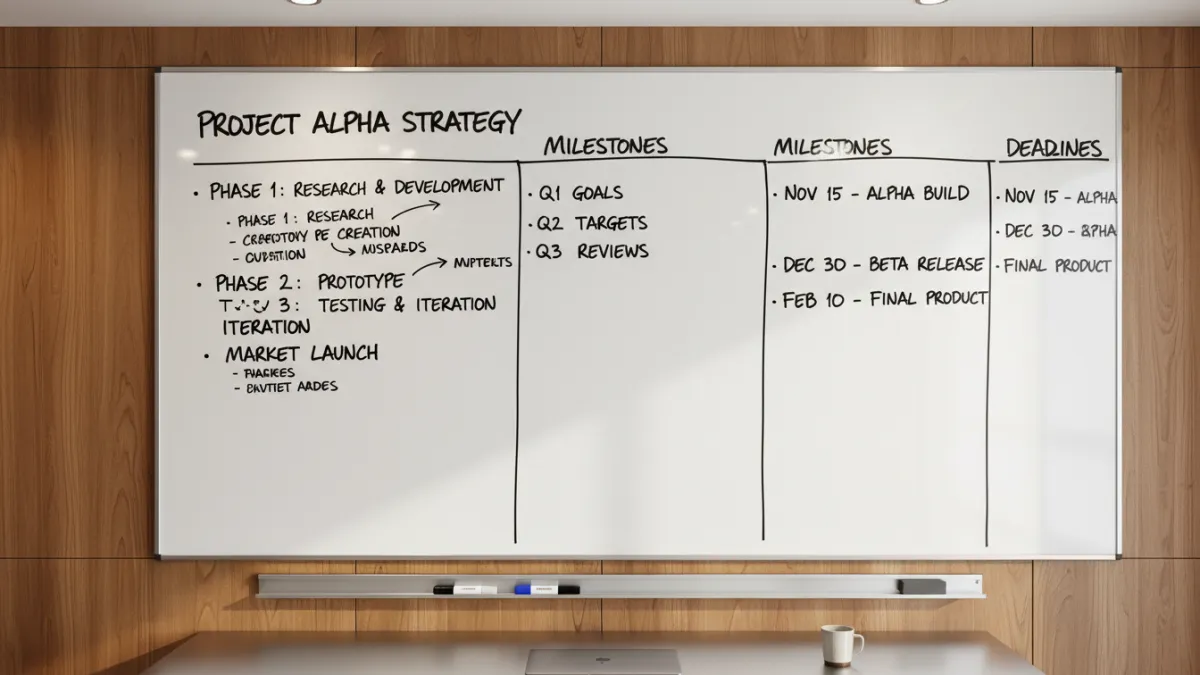 PROJECT ALPHA STRATEGY
• PHASE 1: RESEARCH & DEVELOPMENT
• PHASE 1: RESEARCH
CREATION
• PHASE 2: PROTOTYPE
3: TESTING & ITERATION
ITERATION
• MARKET LAUNCH
MILESTONES
• Q1 GOALS
• Q2 TARGETS
• Q3 REVIEWS
MILESTONES
• NOV 15 - ALPHA BUILD
• DEC 30 - BETA RELEASE
• FEB 10 - FINAL PRODUCT
DEADLINES
• NOV 15 - ALPHA
• DEC 30 -
• FINAL PRODUCT